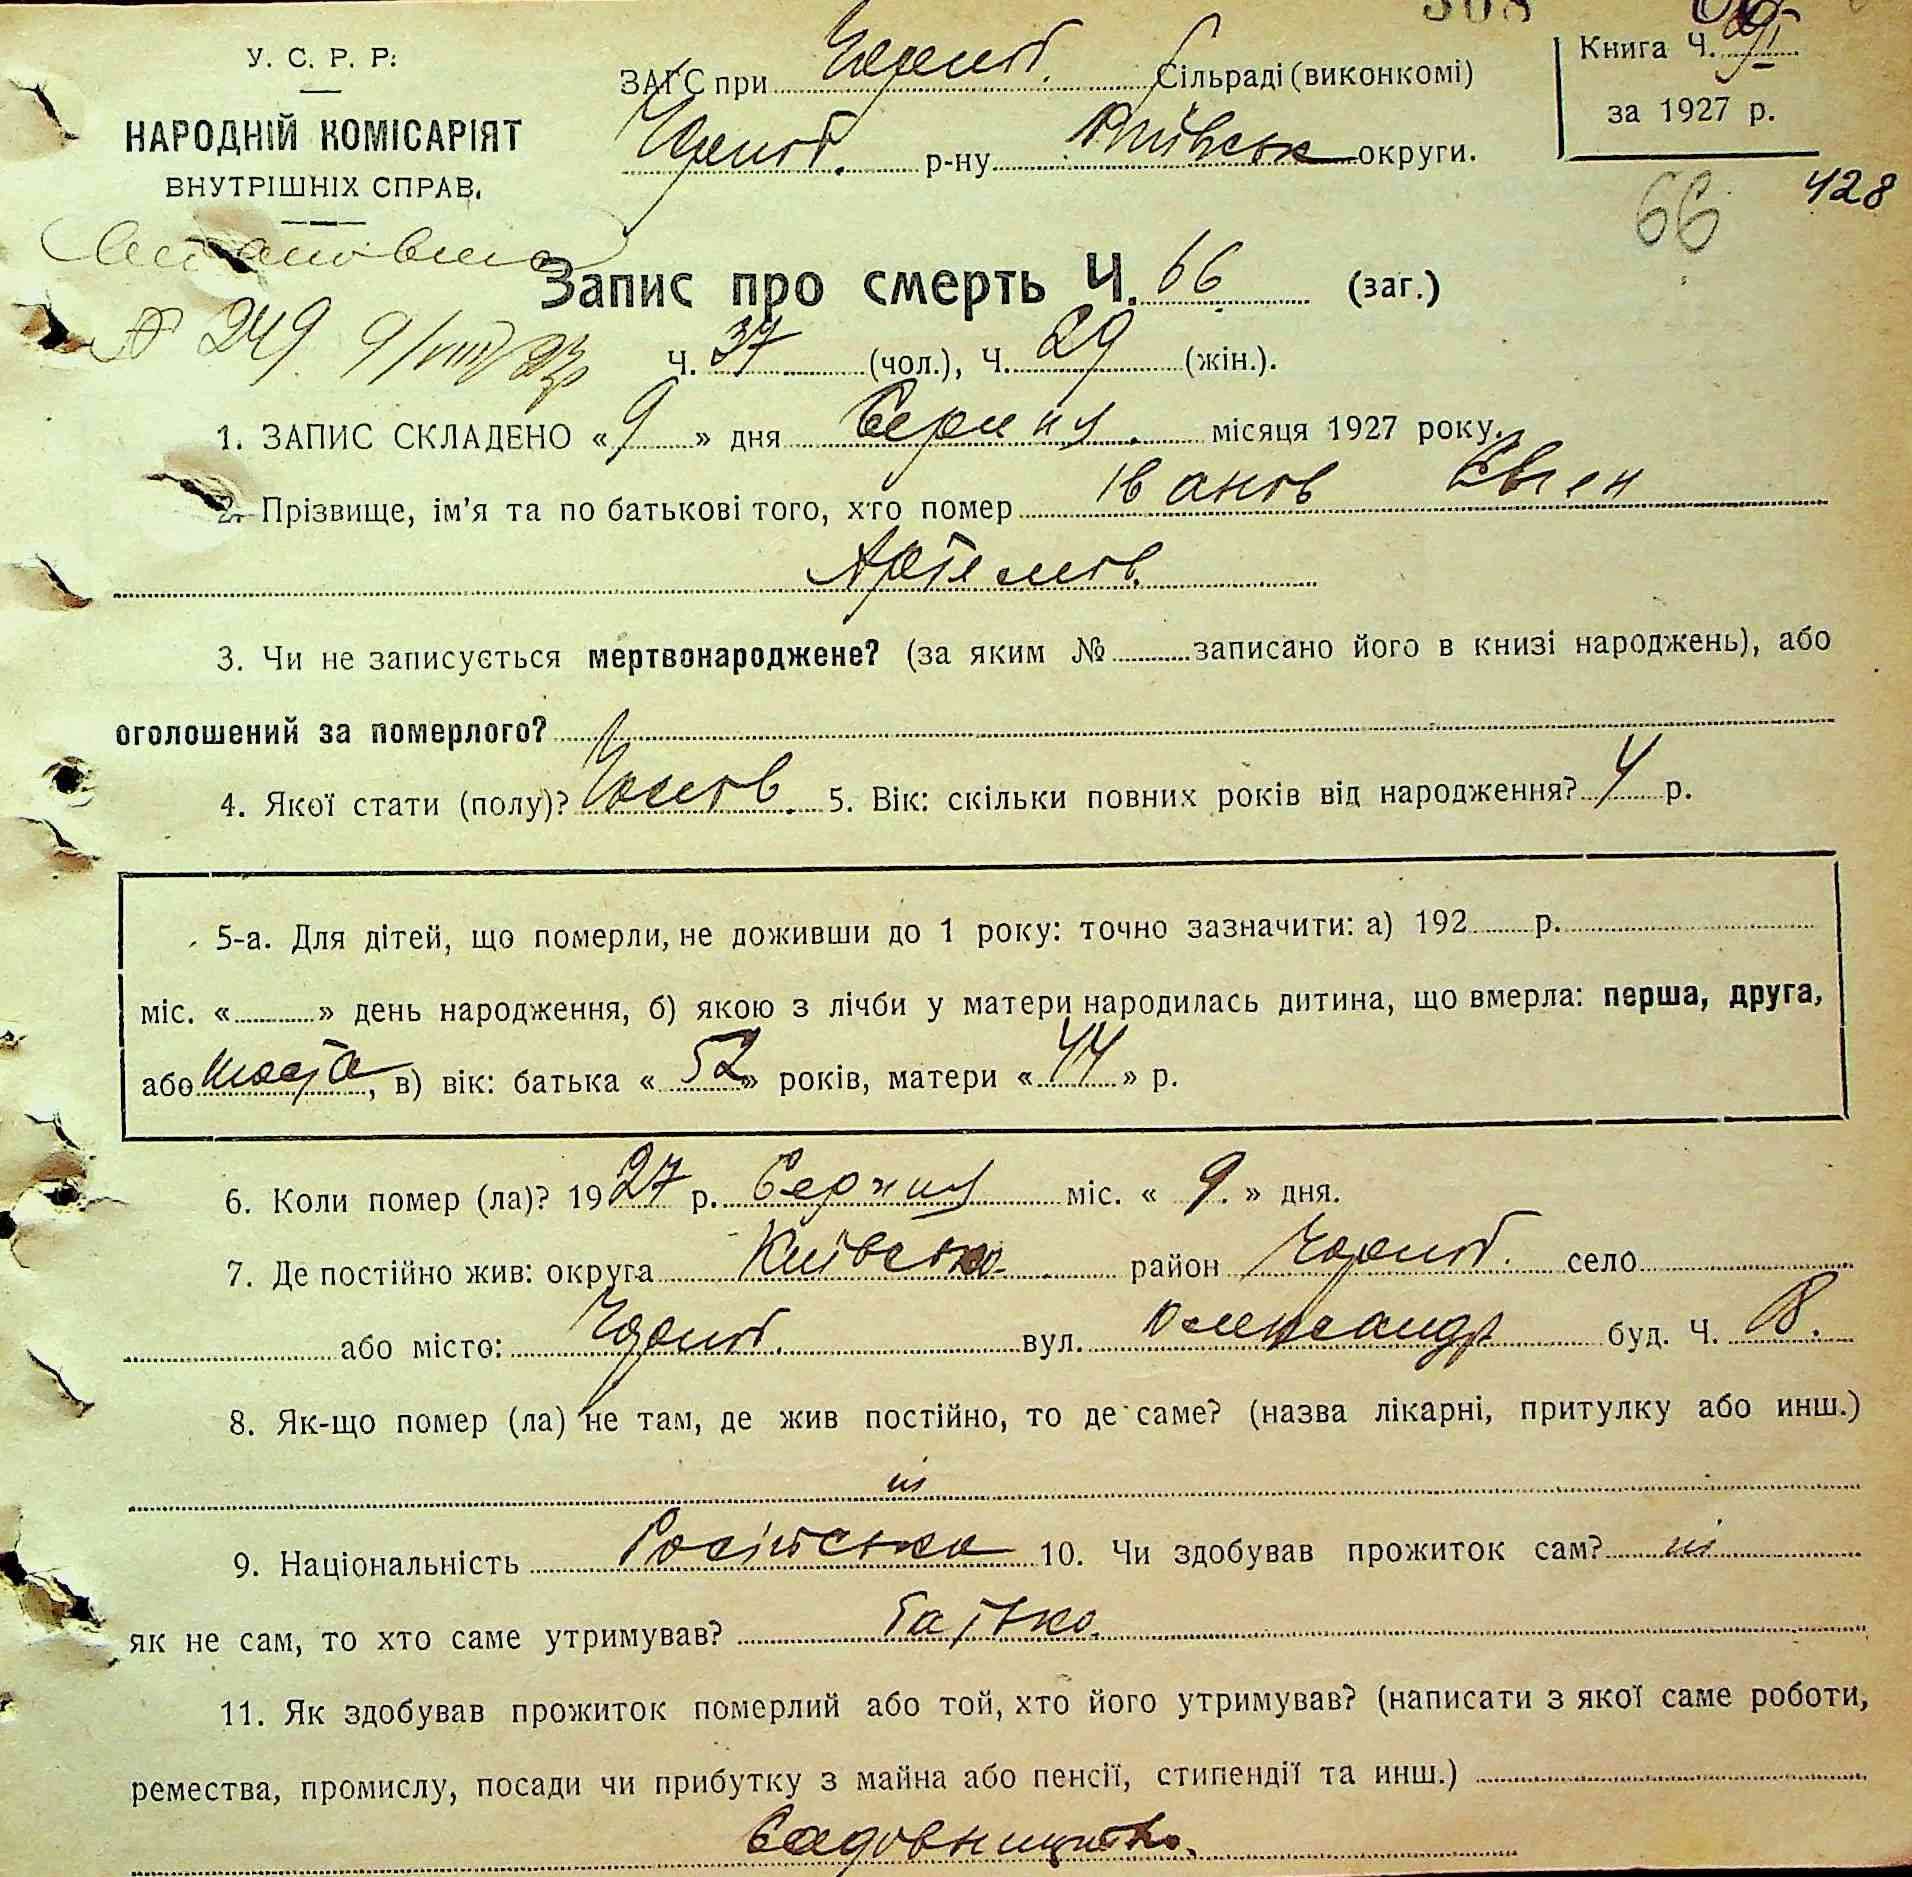 У. С. Р. Р.
НАРОДНІЙ КОМІСАРІЯТ
ВНУТРІШНІХ СПРАВ.
ЗАГС при Чорноб. Сільраді (виконкомі)
Чорноб. р-ну Київськ округи.
Книга Ч.
за 1927 р.
428
66
Запис про смерть Ч. 66 (заг.)
№ 249. 9/VIII
Ч. 37 (чол.), Ч. 29 (жін.).
1. ЗАПИС СКЛАДЕНО «9» дня Серпня місяця 1927 року.
2. Прізвище, ім'я та по батькові того, хто помер Іванов Євген
Артемов.
3. Чи не записується мертвонароджене? (за яким № записано його в книзі народжень), або
оголошений за померлого?
4. Якої стати (полу)? Чолов. 5. Вік: скільки повних років від народження? 4 р.
5-а. Для дітей, що померли, не доживши до 1 року: точно зазначити: а) 192 р.
міс. « » день народження, б) якою з лічби у матери народилась дитина, що вмерла: перша, друга,
або шоста, в) вік: батька «52» років, матери «44» р.
6. Коли помер (ла)? 1927 р. Серпня міс. «9» дня.
7. Де постійно жив: округа Київська район Чорноб. село
або місто: Чорноб. вул. Олександр буд. Ч. 8.
8. Як-що помер (ла) не там, де жив постійно, то де саме? (назва лікарні, притулку або инш.)
ні
9. Національність Російська 10. Чи здобував прожиток сам? ні
як не сам, то хто саме утримував? батько.
11. Як здобував прожиток померлий або той, хто його утримував? (написати з якої саме роботи,
ремества, промислу, посади чи прибутку з майна або пенсії, стипендії та инш.)
Садовництво.